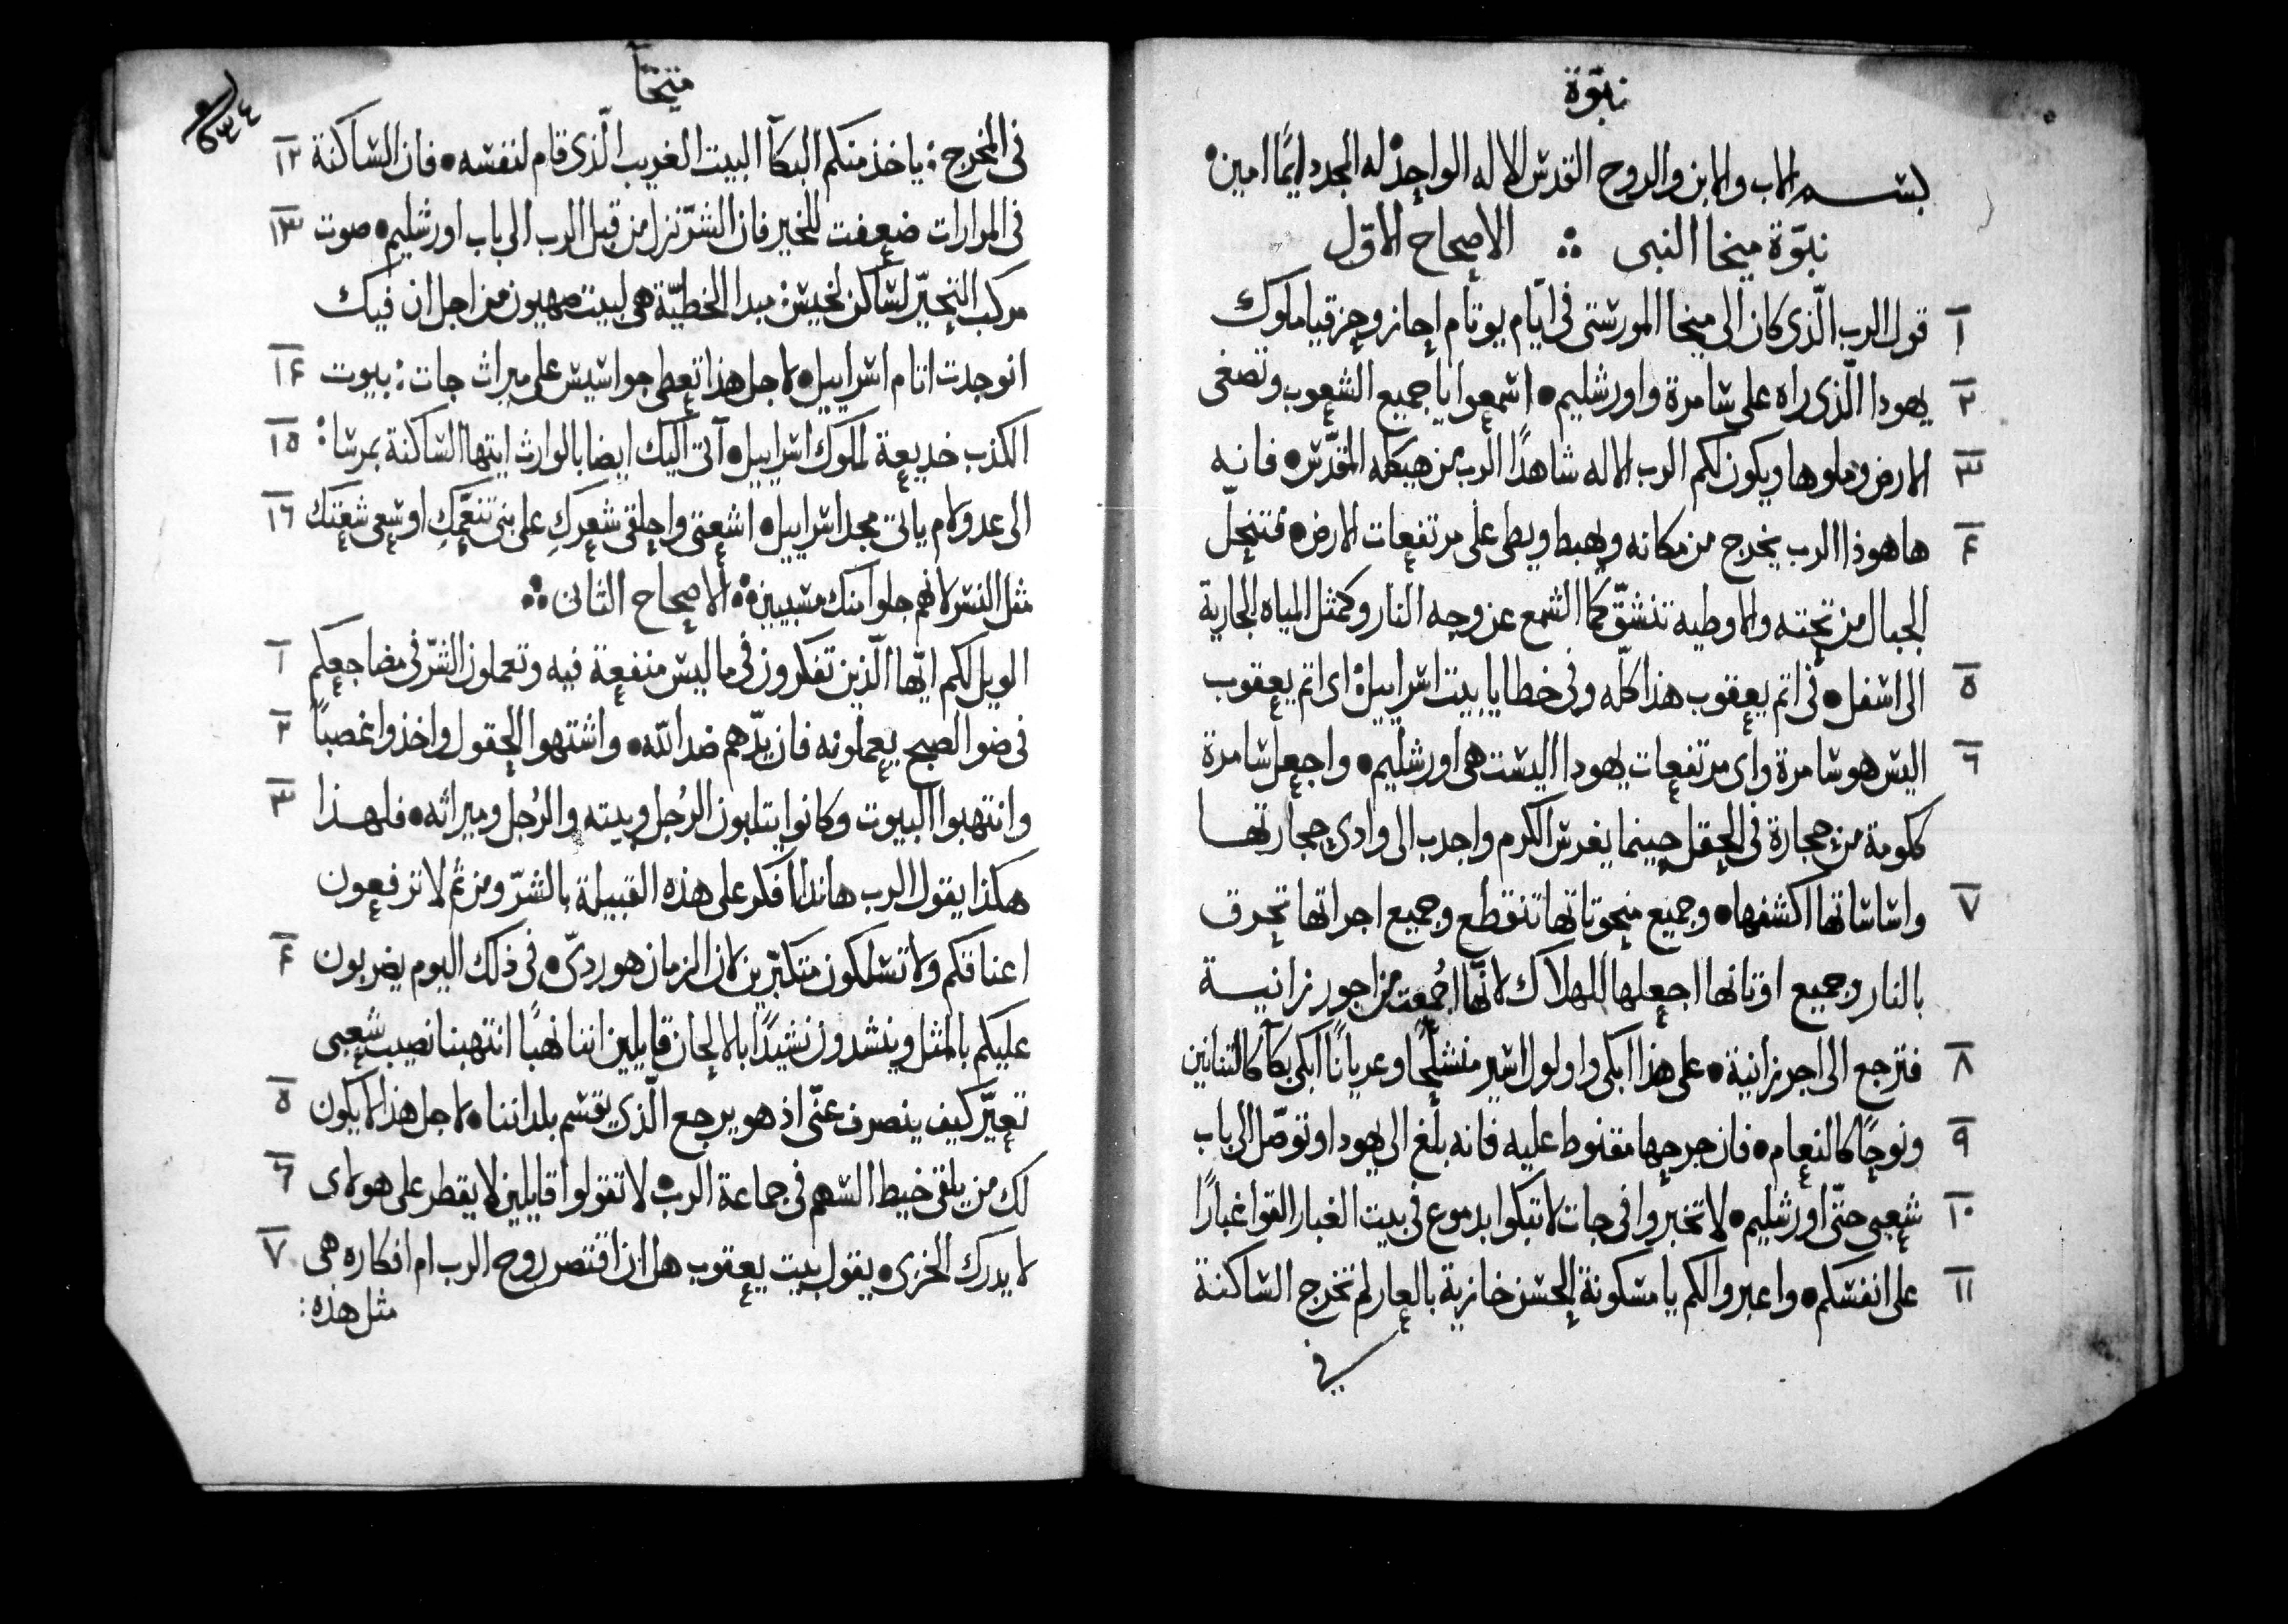 نبوّة
بسم الاب والابن والروح القدس الاله الواحد له المجد دايمًا امين
نبوّة ميخا النبى ∴ الاصحاح الاوّل
١ قول الرب الّذى كان الى ميخا المورشتى فى ايّام يوتام احاز وحزقيا ملوك
٢ يهودا الّذى راه على سامرة واورشليم • اسمعوا يا جميع الشعوب وتصغى
٣ الارض وملوها ويكون لكم الرب الاله شاهدًا الرب من هيكله المقدّس • فانه
۴ ها هوذا الرب يخرج من مكانه ويهبط ويطى على مرتفعات الارض • فتنحلّ
الجبال من تحته والاوطيه تنشقّ كما الشمع عن وجه النار وكمثل المياه الجارية
٥ الى اسفل • فى اثم يعقوب هذا كلّه وفى خطايا بيت اسراييل : اى اثم يعقوب
٦ اليس هو سامرة واى مرتفعات يهودا اليست هى اورشليم • واجعل سامرة
ككومة من حجارة فى الحقل حينما يغرس الكرم واجدب الى وادى حجارتها
٧ واساساتها اكشفها • وجميع منحوتاتها تنقطع وجميع اجراتها تحرق
بالنار وجميع اوثانها اجعلها للهلاك لانّها جُمعت من اجور زانية
٨ فترجع الى اجر زانية • على هذا ابكى واولول اسير منسلحًا وعريانًا ابكى بكآ كالتنانين
٩ ونوحًا كالنعام • فان جرحها مقنوط عليه فانه بلغ الى يهودا وتوصّل الى باب
١٠ شعبى حتّى اورشليم • لا تخبروا فى جات لا تبكوا بدموع فى بيت الغبار القوا غبارًا
١١ على انفسكم • واعبروا لكم يا مسكونة الحسن خازية بالعار لم تخرج الساكنة
فى
ميخآ
٦٣٤
فى المخرج : ياخذ منكم البكآ البيت الغريب الّذى قام لنفسه • فان الساكنة ١٢
فى المرارات ضعفت للخير فان الشرّ نزل من قبل الرب الى باب اورشليم • صوت ١٣
مركب التحيّر لساكن لخيش : مبدا الخطيّة هى لبيت صهيون من اجل ان فيك
انوجدت اثام اسراييل • لاجل هذا تعطى جواسيس على ميراث جات : بيوت ١۴
الكذب خديعة لملوك اسراييل • آتى اليك ايضا بالوارث ايتها الساكنة بمرسا : ١٥
الى عدولام ياتى مجد اسراييل • اشعتى واحلقى شعركِ على بنى تنعّمكِ اوسعى شعثك ١٦
مثل النسر لانهم جلوا منك مسبيين ∴ الاصحاح الثانى ∴
الويل لكم ايّها الّذين تفكرون فى ما ليس منفعة فيه وتعملون الشرّ فى مضاجعكم ١
فى ضو الصبح يعملونه فان يدّهم ضد الله • واشتهوا الحقول واخذوا غصبًا ٢
وانتهبوا البيوت وكانوا يتلبون الرُجل وبيته والرُجل وميراثه • فلهذا ٣
هكذا يقول الرب هانذا افكر على هذه القبيلة بالشرّ ومن ثم لا ترفعون
اعناقكم ولا تسلكون متكبّرين لان الزمان هو ردىّ • فى ذلك اليوم يضربون ۴
عليكم بالمثل وينشدون نشيدًا بالالحان قايلين اننا نهبًا انتهبنا نصيب شعبى
تعيّر كيف ينصرف عنّى اذ هو يرجع الّذى يقسم بلداننا • لاجل هذا لا يكون ٥
لك من يلقى خيط السهم فى جماعة الرب • لا تقولوا قايلين لا يقطر على هولاى ٦
لا يدرك الخزى • يقول بيت يعقوب هل ان اقتصر روح الرب ام افكاره هى ٧
مثل هذه :